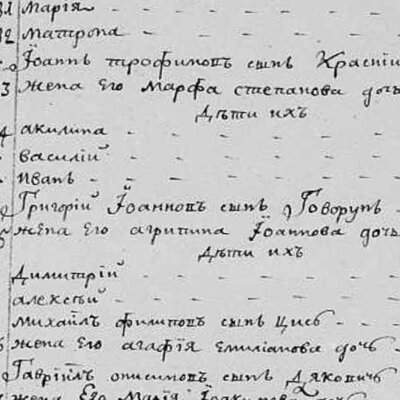 31 Марія
32 Матрона
Іоаннъ трофимовъ сынъ Красні
3 жена Его Марфа степанова доч
Дѣти ихъ
4 акилина
василий
иванъ
Григорій Іоанновъ сынъ Говорун
жена Его агрипина Іоаннова доч
Дѣти ихъ
Димитрій
алексѣй
михаилъ филиповъ сынъ Цись
жена Его агафія Емилианова доч
Гавріилъ онисимовъ сынъ Дяковичъ
жена Его Марія